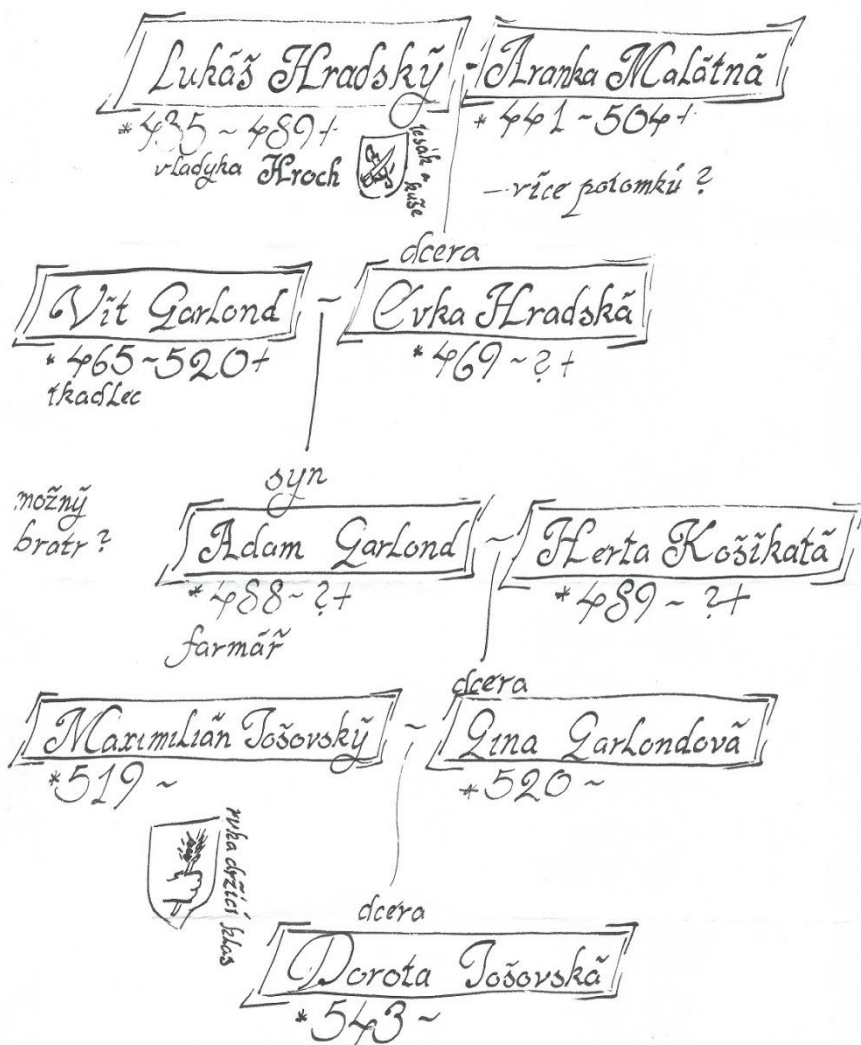 Lukáš Hradský - Aranka Malátná
*435 ~ 489+
*441 ~ 504+
vladyka Hroch
tesák a kuše
– více potomků ?
dcera
Vít Garlond ~ Evka Hradská
*465 ~ 520+
*469 ~ ? +
tkadlec
syn
možný
bratr ?
Adam Garlond ~ Herta Košíkatá
*488 ~ ? +
*489 ~ ? +
farmář
dcera
Maximilián Tošovský ~ Gina Garlondová
*519 ~
*520 ~
ruka držící klas
dcera
Dorota Tošovská
*543 ~